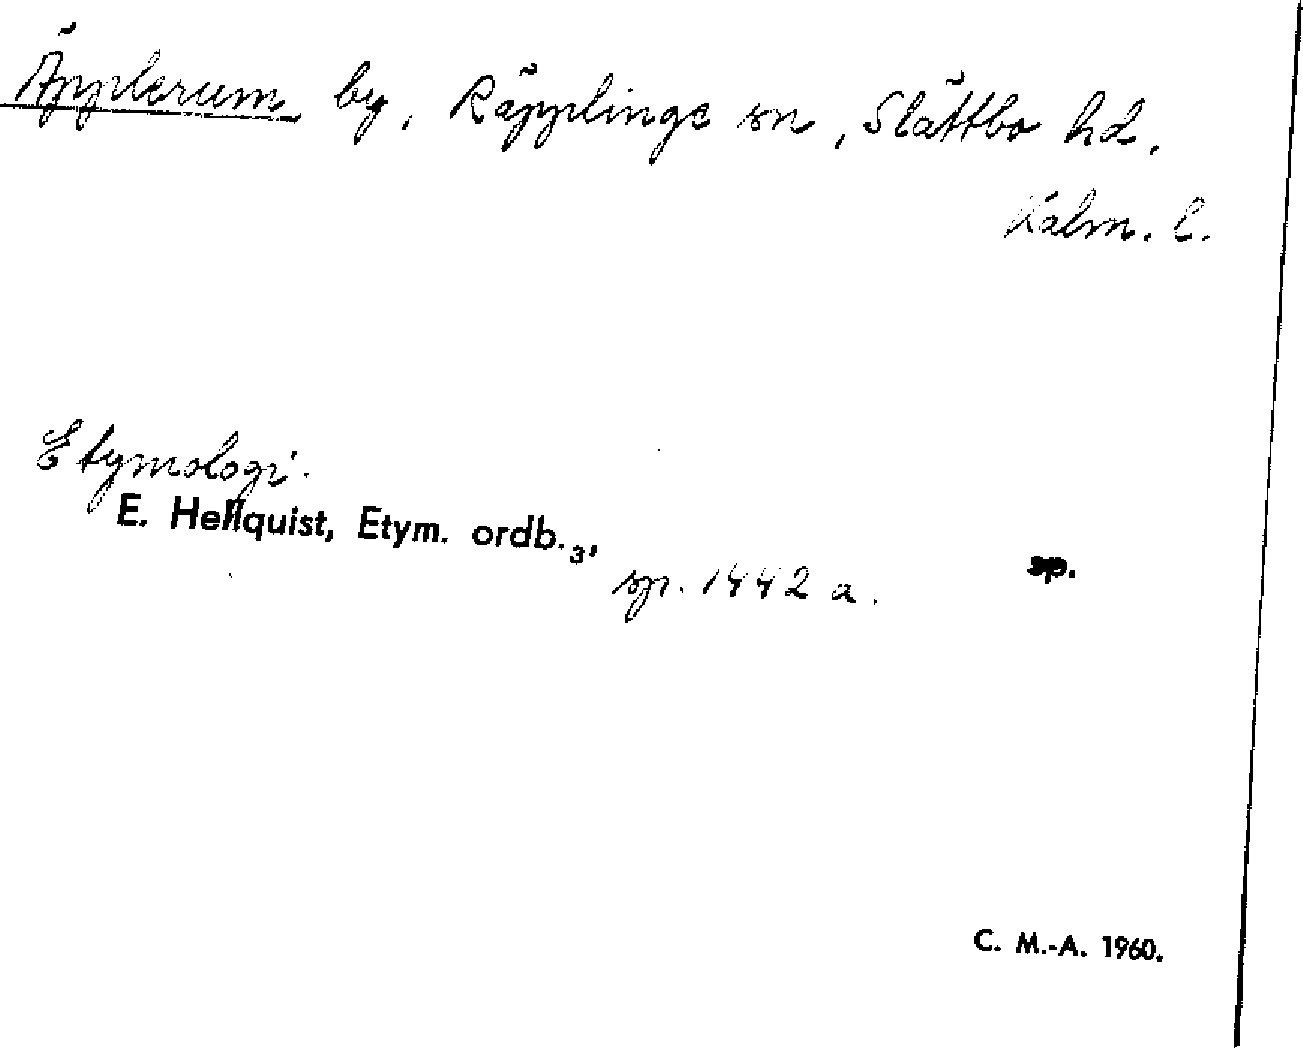 Äpplerum by, Räpplinge sn, Slättbo hd.
Kalm. l.
Etymologi.
E. Hellquist, Etym. ordb.₃, sp.
sp. 1442 a.
C. M.-A. 1960.